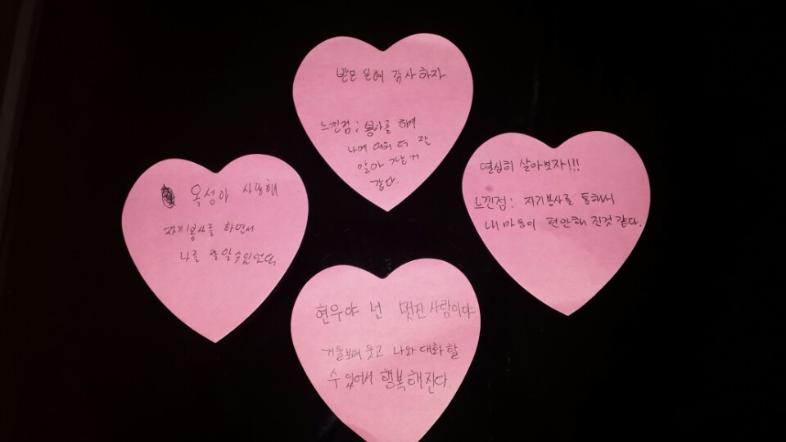 받은 은혜 감사하자
느낀점: 봉사를 통해
나에 대해 더 잘
알아 가는거
같다.
옥성아 사랑해
자기봉사를 하면서
나를 알 수 있었다.
열심히 살아보자!!!
느낀점: 자기봉사를 통해서
내 마음이 편안해 진것 같다.
현우야 넌 멋진 사람이야
거울보며 웃고 나와 대화 할
수 있어서 행복해진다.